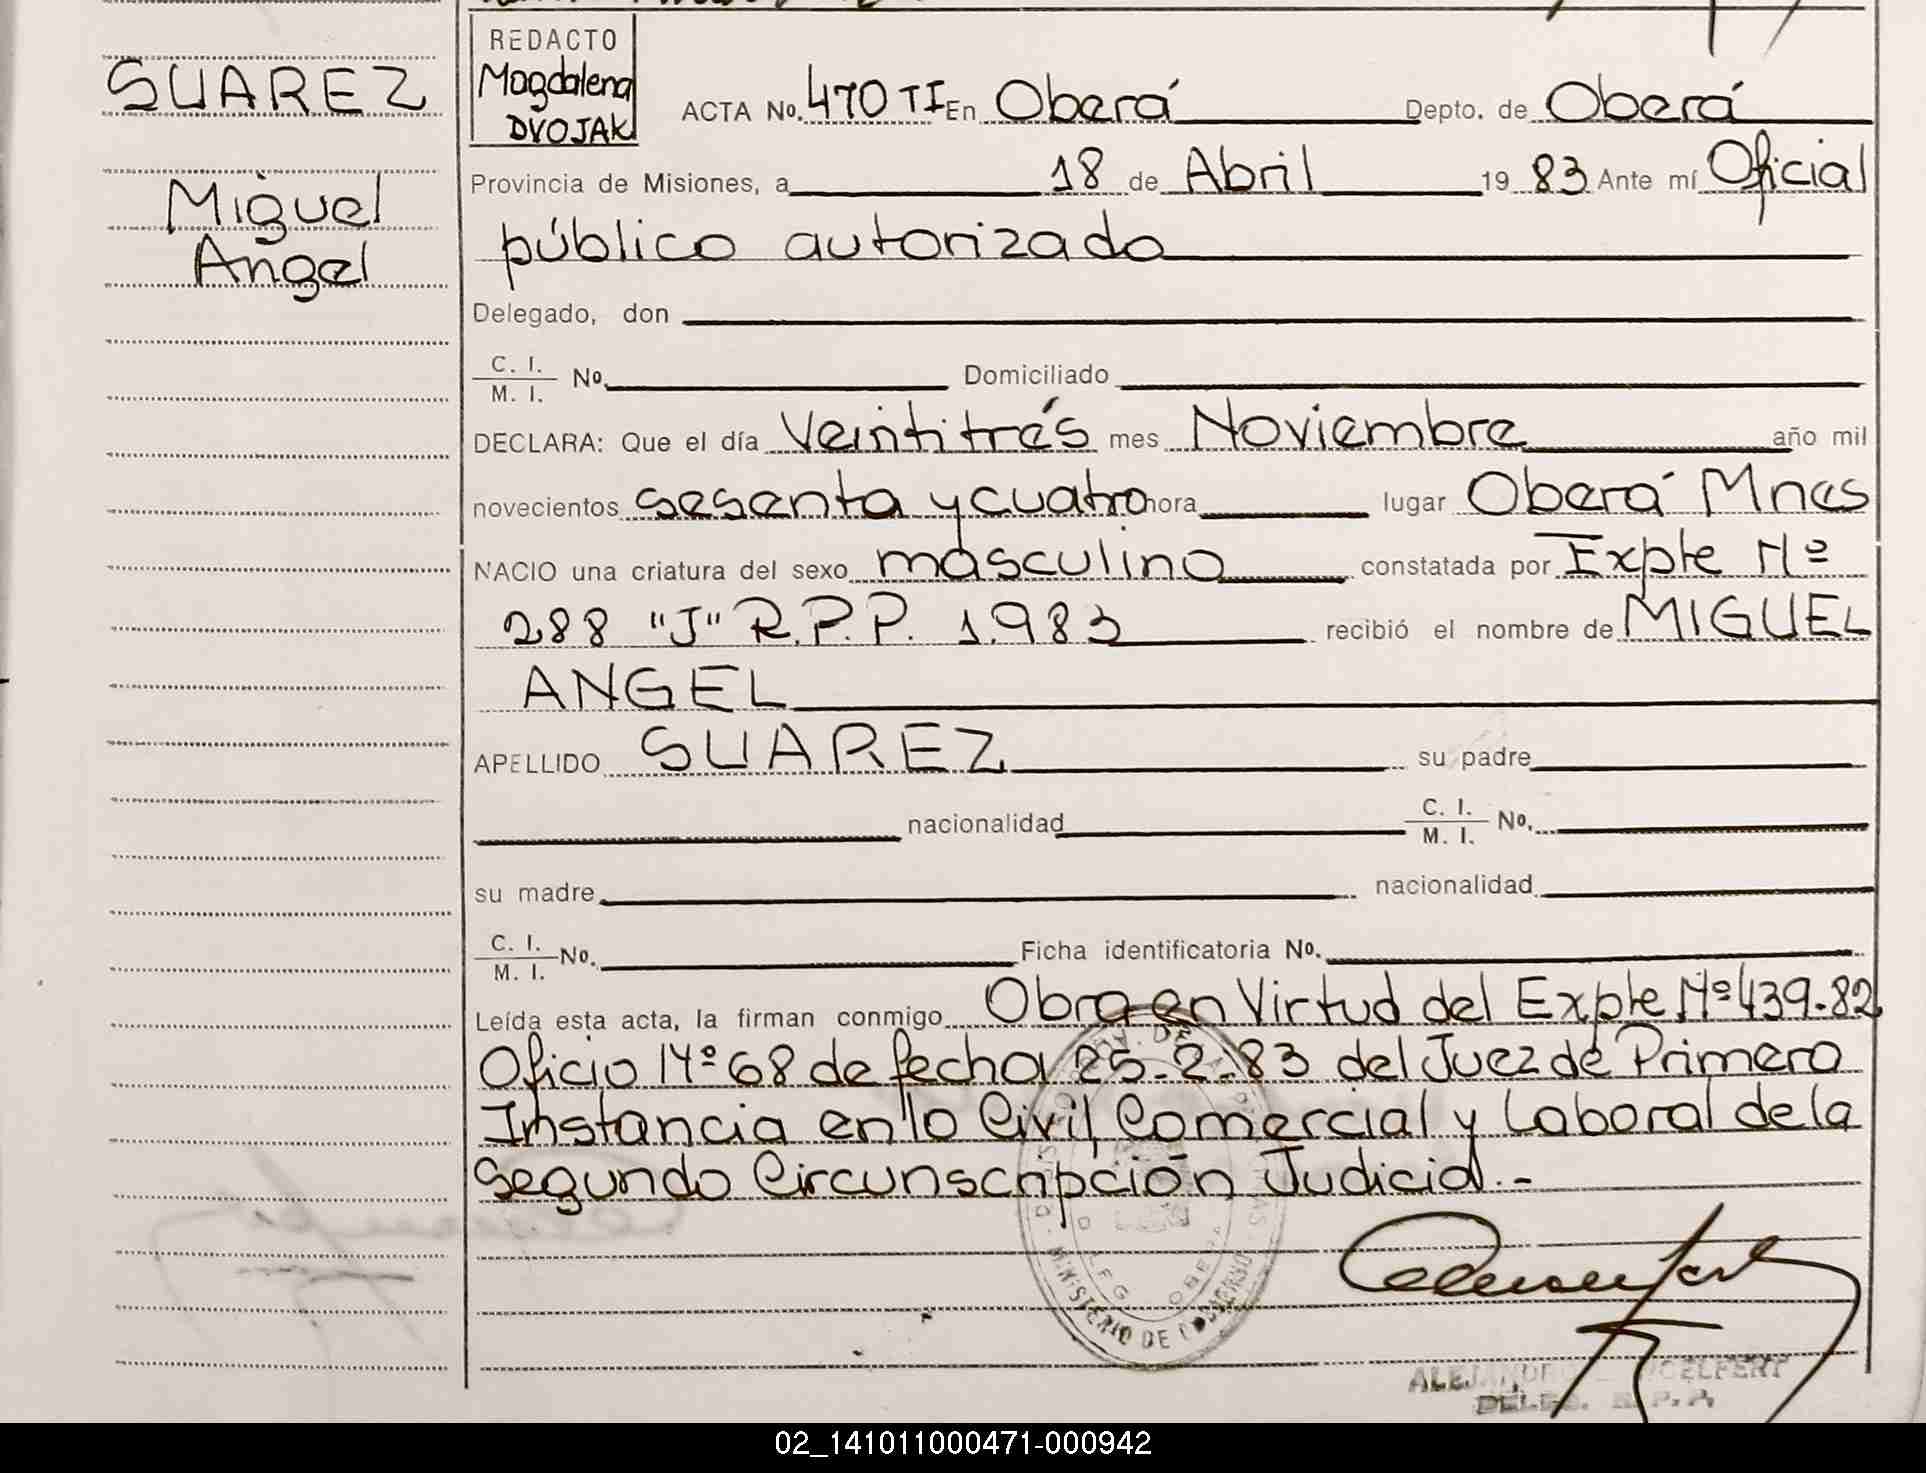 SUAREZ
Miguel
Angel
REDACTO
Magdalena
DVOJAK
ACTA No. 470 TI En Oberá Depto. de Oberá
Provincia de Misiones, a 18 de Abril 19 83 Ante mí Oficial
público autorizado
Delegado, don
C. I. / M. I. No. Domiciliado
DECLARA: Que el día Veintitrés mes Noviembre año mil
novecientos sesenta y cuatro hora lugar Oberá Mnes
NACIO una criatura del sexo masculino constatada por Expte Nº
288 "J" R.P.P. 1.983 recibió el nombre de MIGUEL
ANGEL
APELLIDO SUAREZ su padre
nacionalidad C. I. / M. I. No.
su madre nacionalidad
C. I. / M. I. No. Ficha identificatoria No.
Leída esta acta, la firman conmigo Obra en Virtud del Expte Nº 439-82
Oficio Nº 68 de fecha 25-2-83 del Juez de Primera
Instancia en lo Civil, Comercial y Laboral de la
Segunda Circunscripción Judicial.-
MINISTERIO DE GOBIERNO
DELEG. R.P.P.
02_141011000471-000942